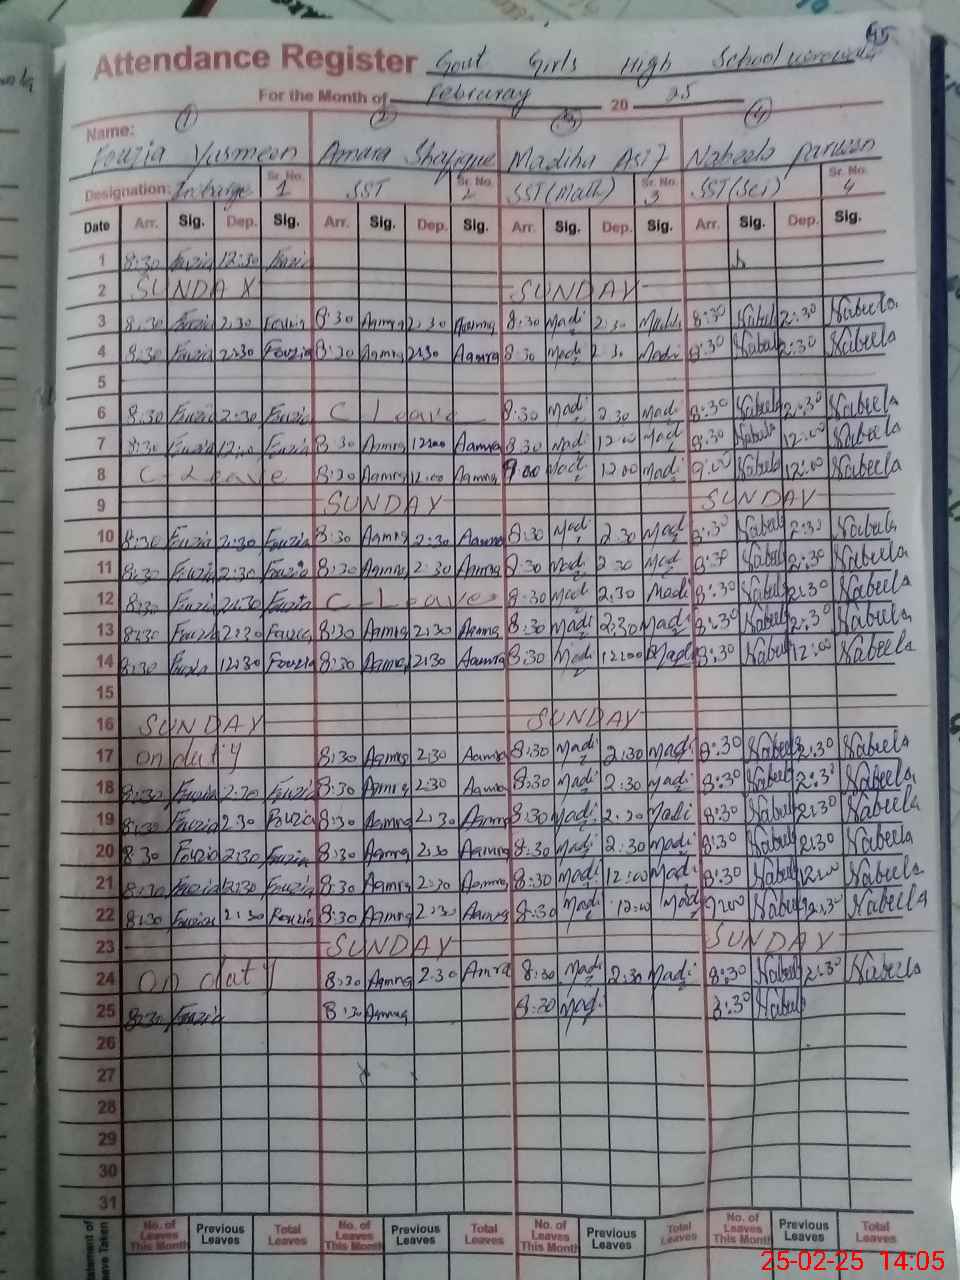 45
Attendance Register Govt Girls High School
For the Month of Februray 20 25
1 2 3 4
Name:
Fouzia Yasmeen Amara Shafique Madiha Asif Nabeela parveen
Designation: Incharge Sr. No. 1 SST Sr. No. 2 SST(Math) Sr. No. 3 SST(Sci) Sr. No. 4
Date Arr. Sig. Dep. Sig. Arr. Sig. Dep. Sig. Arr. Sig. Dep. Sig. Arr. Sig. Dep. Sig.
1 8:30 Fouzia 12:30 Fouzia
2 SUNDAY SUNDAY
3 8:30 Fouzia 2:30 Fouzia 8:30 Aamra 2:30 Aamra 8:30 Madi 2:30 Madi 8:30 Nabeela 2:30 Nabeela
4 8:30 Fouzia 2:30 Fouzia 8:30 Aamra 2:30 Aamra 8:30 Madi 2:30 Madi 8:30 Nabeela 2:30 Nabeela
5
6 8:30 Fouzia 2:30 Fouzia C Leave 8:30 Madi 2:30 Madi 8:30 Nabeela 2:30 Nabeela
7 8:30 Fouzia 12:00 Fouzia 8:30 Aamra 12:00 Aamra 8:30 Madi 12:00 Madi 8:30 Nabeela 12:00 Nabeela
8 C-Leave 8:30 Aamra Aamra 9:00 Madi 12:00 Madi 9:00 Nabeela 12:00 Nabeela
9 SUNDAY SUNDAY
10 8:30 Fouzia 2:30 Fouzia 8:30 Aamra 2:30 Aamra 8:30 Madi 2:30 Madi 8:30 Nabeela 2:30 Nabeela
11 8:30 Fouzia 2:30 Fouzia 8:30 Aamra 2:30 Aamra 8:30 Madi 2:30 Madi 8:30 Nabeela 2:30 Nabeela
12 8:30 Fouzia 2:30 Fouzia C-Leave 8:30 Madi 2:30 Madi 8:30 Nabeela 2:30 Nabeela
13 8:30 Fouzia 2:30 Fouzia 8:30 Aamra 2:30 Aamra 8:30 Madi 2:30 Madi 8:30 Nabeela 2:30 Nabeela
14 8:30 Fouzia 12:30 Fouzia 8:30 Aamra 2:30 Aamra 8:30 Madi 12:00 Madi 8:30 Nabeela 12:00 Nabeela
15
16 SUNDAY SUNDAY
17 on duty 8:30 Aamra 2:30 Aamra 8:30 Madi 2:30 Madi 8:30 Nabeela 2:30 Nabeela
18 8:30 Fouzia 2:30 Fouzia 8:30 Aamra 2:30 Aamra 8:30 Madi 2:30 Madi 8:30 Nabeela 2:30 Nabeela
19 8:30 Fouzia 2:30 Fouzia 8:30 Aamra 2:30 Aamra 8:30 Madi 2:30 Madi 8:30 Nabeela 2:30 Nabeela
20 8:30 Fouzia 2:30 Fouzia 8:30 Aamra 2:30 Aamra 8:30 Madi 2:30 Madi 8:30 Nabeela 2:30 Nabeela
21 8:30 Fouzia 12:30 Fouzia 8:30 Aamra 2:30 Aamra 8:30 Madi 12:00 Madi 8:30 Nabeela 12:00 Nabeela
22 8:30 Fouzia 2:30 Fouzia 8:30 Aamra 2:30 Aamra 8:30 Madi 12:00 Madi 9:00 Nabeela 2:30 Nabeela
23 SUNDAY SUNDAY
24 On duty 8:30 Aamra 2:30 Amra 8:30 Madi 2:30 Madi 8:30 Nabeela 2:30 Nabeela
25 8:30 Fouzia 8:30 Aamra 8:30 Madi 8:30 Nabeela
26
27
28
29
30
31
No. of Leaves This Month Previous Leaves Total Leaves No. of Leaves This Month Previous Leaves Total Leaves No. of Leaves This Month Previous Leaves Total Leaves No. of Leaves This Month Previous Leaves Total Leaves
25-02-25 14:05